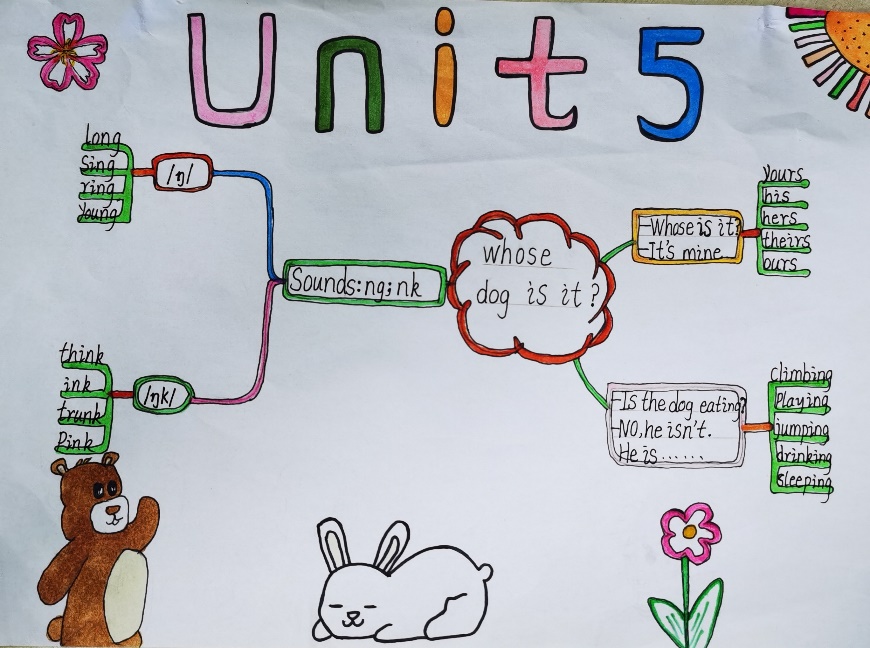 Unit 5
long
sing
ring
young
/ŋ/
think
ink
trunk
Pink
/ŋk/
Sounds:ng;nk
whose
dog is it?
-Whose is it?
-It's mine
yours
his
hers
theirs
ours
-Is the dog eating?
-NO,he isn't.
He is......
climbing
Playing
jumping
drinking
sleeping